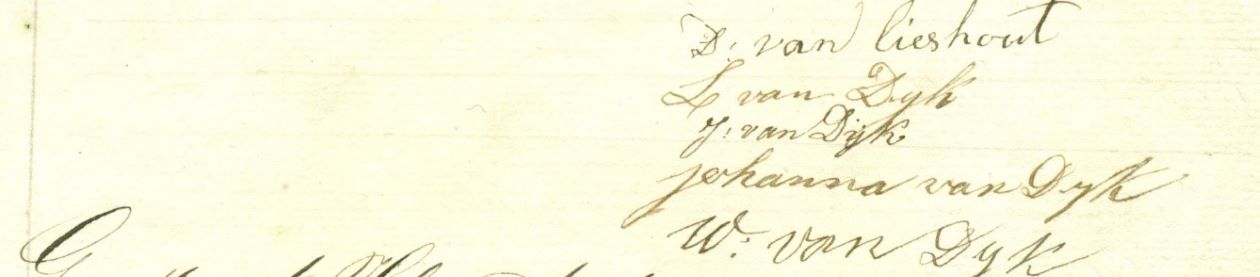 D. van lieshout
L van Dyk
J. van Dijk
johanna van Dyk
W. van Dyk